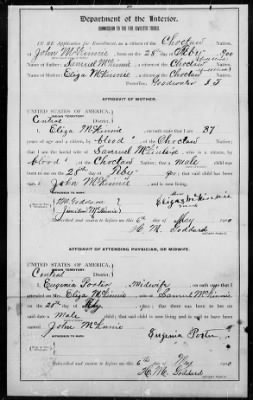 Department of the Interior.
COMMISSION TO THE FIVE CIVILIZED TRIBES.
IN RE Application for Enrollment, as a citizen of the Choctaw Nation,
John McKinnie, born on the 28th day of Feby, 900
Name of Father: Samuel McKinnie a citizen of the Choctaw Nation.
Name of Mother: Eliza McKinnie a citizen of the Choctaw Nation.
Postoffice, Goodwater I T
AFFIDAVIT OF MOTHER.
UNITED STATES OF AMERICA,
INDIAN TERRITORY,
Central District.
I, Eliza McKinnie, on oath state that I am 37
years of age and a citizen, by blood, of the Choctaw Nation;
that I am the lawful wife of Samuel McKinnie, who is a citizen, by
blood of the Choctaw Nation; that a male child was
born to me on the 28th day of Feby; that said child has been
named John McKinnie, and is now living.
Eliza McKinnie
Subscribed and sworn to before me this 6th day of May
H. M. Goddard
AFFIDAVIT OF ATTENDING PHYSICIAN, OR MIDWIFE.
UNITED STATES OF AMERICA,
INDIAN TERRITORY,
Central District.
I, Eugenia Porter, a midwife, on oath state that I
attended on Mrs. Eliza McKinnie, wife of Samuel McKinnie
on the 28th day of Feby; that there was born to her on
said date a male child; that said child is now living and is said to have been
named John McKinnie
Eugenia Porter
Subscribed and sworn to before me this 6th day of May
H. M. Goddard